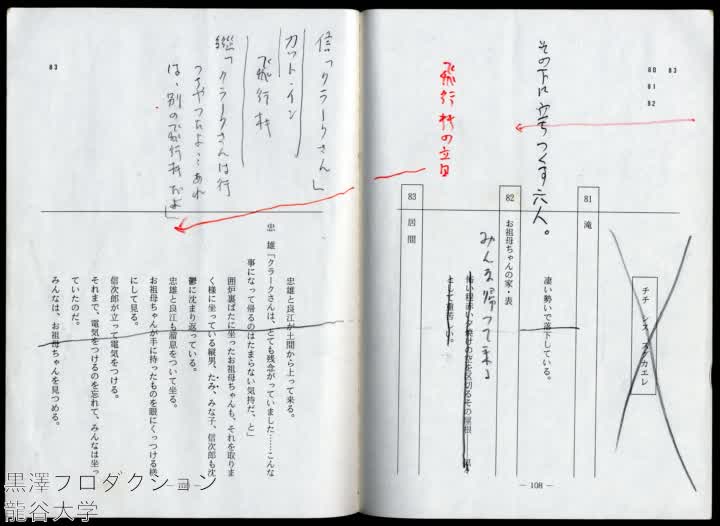 80 83
81
82
その下に立ちつくす六人。
チチ シス スグカエレ
81 滝
凄い勢いで落下している。
82 お祖母ちゃんの家・表
みんな帰って来る
怖い程赤い夕焼けの空を区切るその屋根
として重苦しい。
83 居間
飛行機の立日
― 108 ―
83
信「クラークさん」
カット・イン
飛行機
縦「クラークさんは行
っちゃったよ…あれ
は、別の飛行機だよ」
忠雄と良江が土間から上って来る。
忠 雄「クラークさんは、とても残念がっていました……こんな
事になって帰るのはたまらない気持だ、と」
囲炉裏ばたに坐ったお祖母ちゃんも、それを取りま
く様に坐っている縦男、たみ、みな子、信次郎も沈
鬱に沈まり返っている。
忠雄と良江も溜息をついて坐る。
お祖母ちゃんが手に持ったものを眼にくっつける様
にして見る。
信次郎が立って電気をつける。
それまで、電気をつけるのを忘れて、みんなは坐っ
ていたのだ。
みんなは、お祖母ちゃんを見つめる。
黒澤プロダクション
龍谷大学